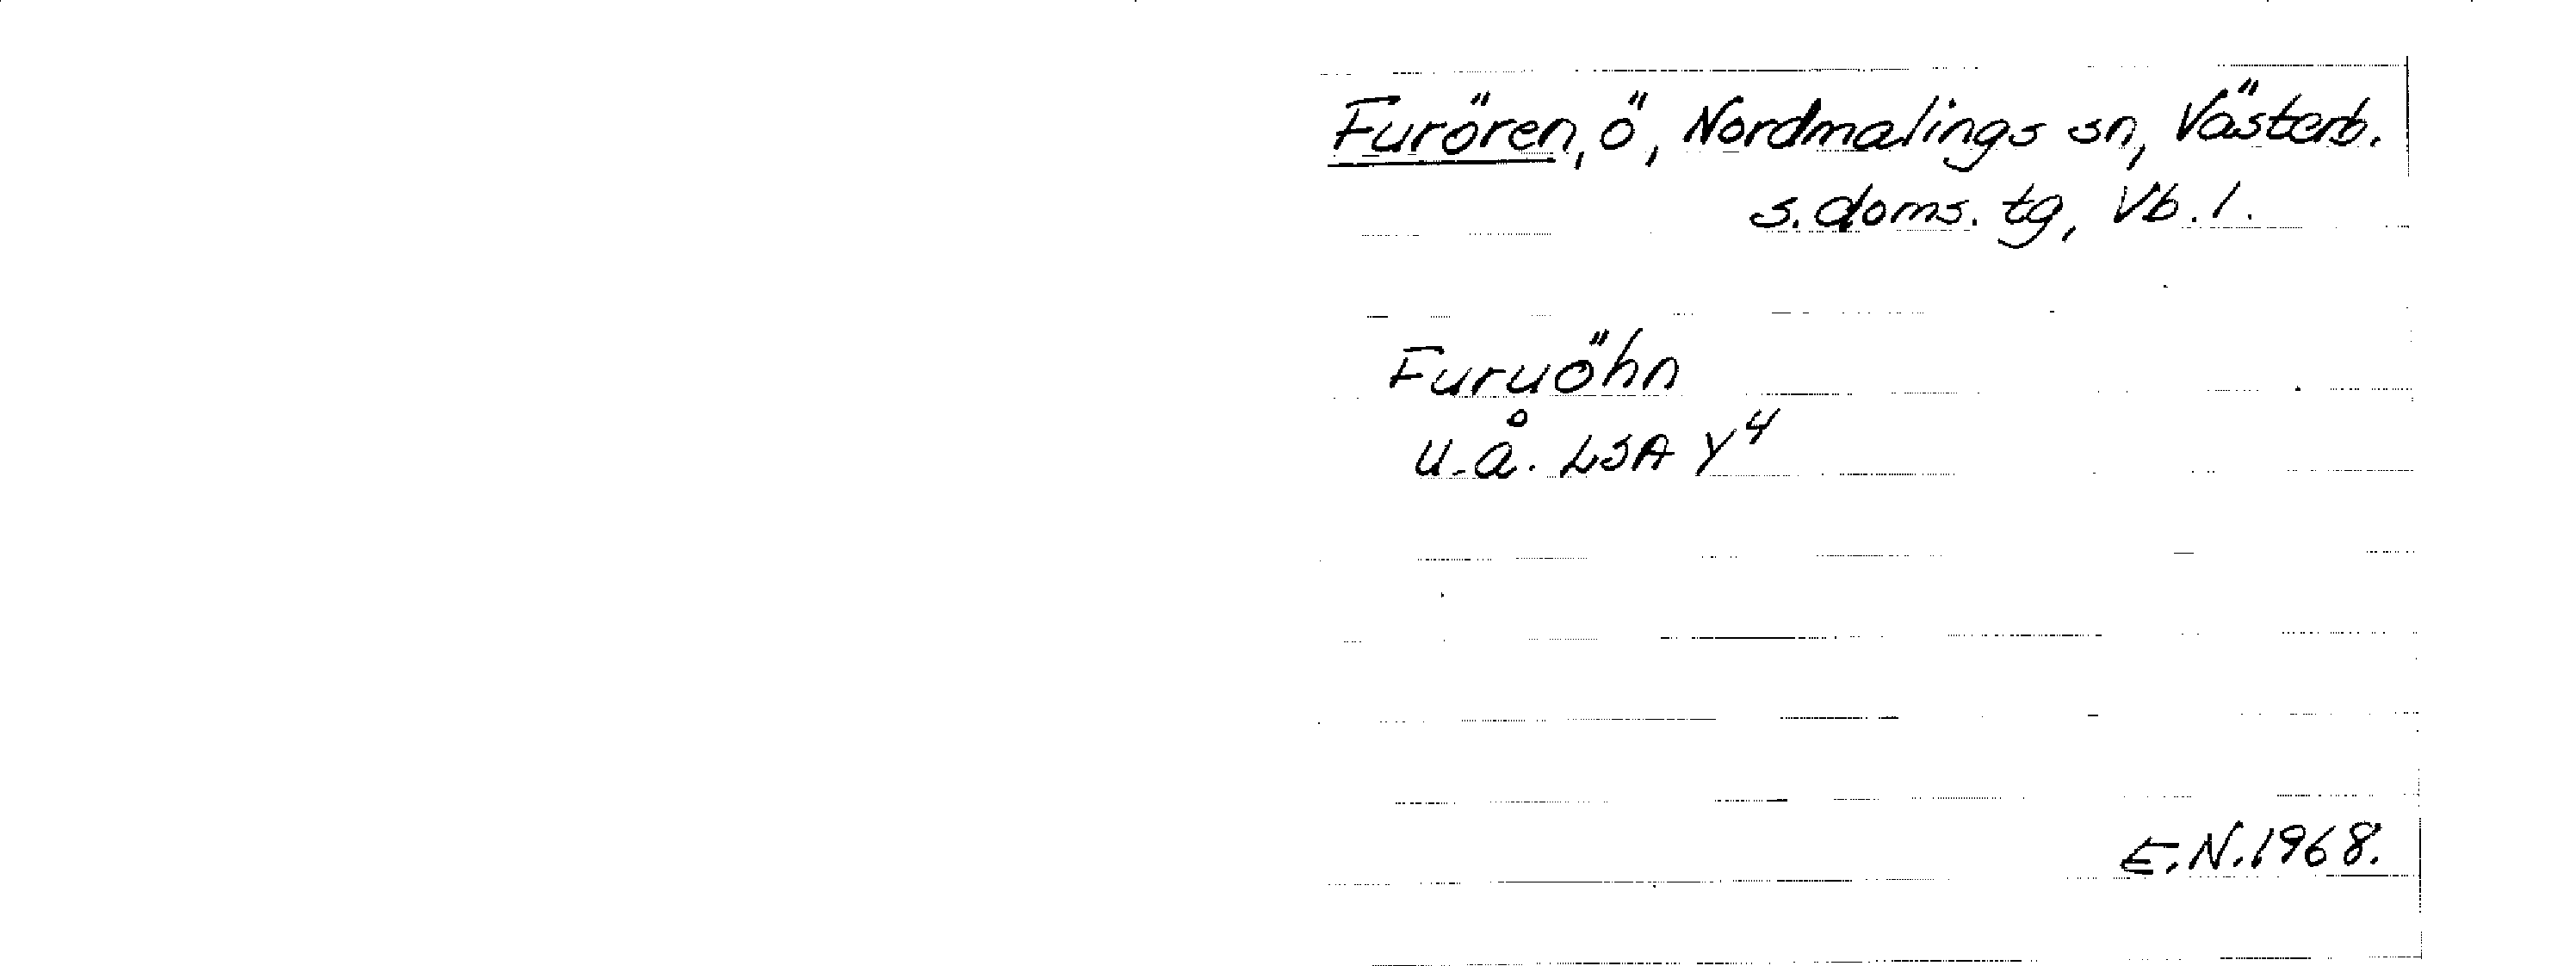 Furören, ö, Nordmalings sn, Västerb.
s. doms. tg, Vb. l.
Furuöhn
u.å. LSA Y4
E.N. 1968.